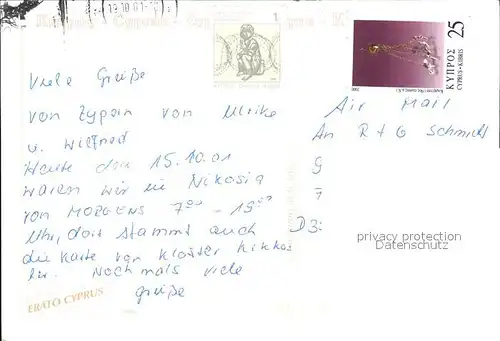 13 10 01-1
1
25
ΚΥΠΡΟΣ
CYPRUS - KIBRIS
Viele Grüße
von Zypern von Ulrike
u. Wilfried
Heute den 15.10.01
waren wir in Nikosia
von MORGENS 7⁰⁰ - 19⁰⁰
Uhr, dort stammt auch
die Karte vom Kloster Kikkos
her. Nochmals viele
Grüße
Air Mail
An R + G Schmidt
9
7
D3
privacy protection
Datenschutz
ERATO CYPRUS